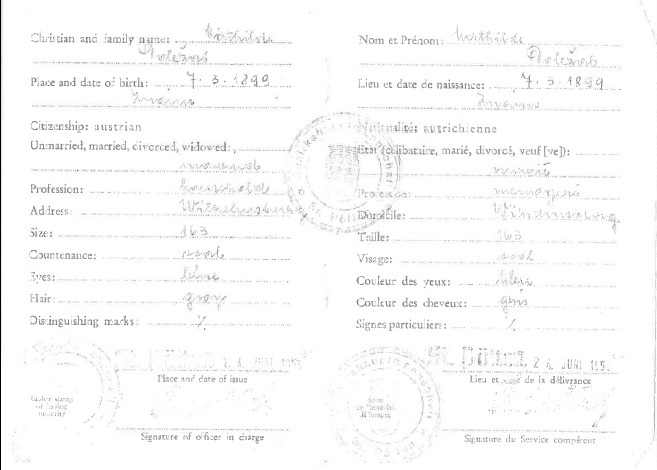 Christian and family name: Mathilde
Doležal
Place and date of birth: 7. 3. 1899
Znaim
Citizenship: austrian
Unmarried, married, divorced, widowed:
married
Profession: Household
Address: Wilhelmsburg
Size: 163
Countenance: oval
Eyes: blue
Hair: gray
Distinguishing marks: ⁒
Place and date of issue
Signature of officer in charge
Nom et Prénom: Mathilde
Doležal
Lieu et date de naissance: 7. 3. 1899
Znaim
Nationalité: autrichienne
État (célibataire, marié, divorcé, veuf [ve]):
Profession:
Domicile: Wilhelmsburg
Taille: 163
Visage: oval
Couleur des yeux: bleu
Couleur des cheveux: gris
Signes particuliers: ⁒
St. Pölten, 24. JUNI 195
Lieu et date de la délivrance
Signature du Service compétent